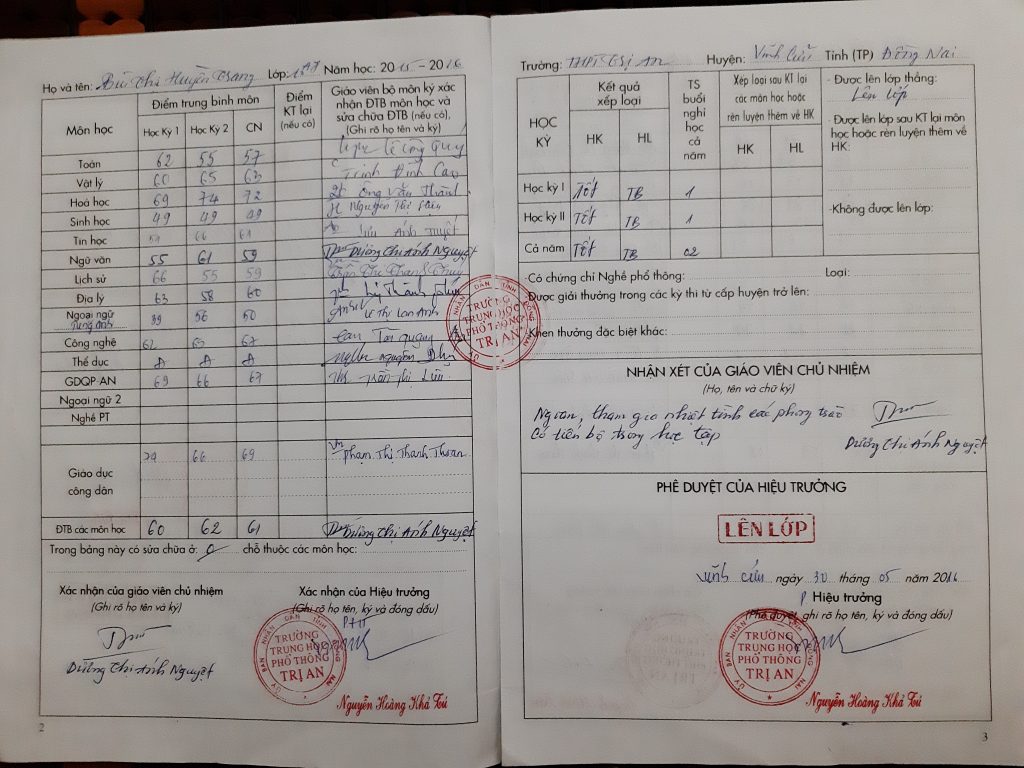 Họ và tên: Bùi Thị Huyền Trang Lớp: Năm học: 2015 - 2016
Môn học
Điểm trung bình môn
Học Kỳ 1 Học Kỳ 2 CN
Điểm KT lại (nếu có)
Giáo viên bộ môn ký xác nhận ĐTB môn học và sửa chữa ĐTB (nếu có), (Ghi rõ họ tên và ký)
Toán 62 55 57 Lê Công Quy
Vật lý 60 65 63 Trinh Đình Cao
Hoá học 69 74 72 Ông Văn Thành
Sinh học 49 49 49 Nguyễn Thị
Tin học 66 61 Ánh Tuyết
Ngữ văn 55 61 59 Dương Thị Ánh Nguyệt
Lịch sử 66 55 59 Trần Thị Thanh Thúy
Địa lý 63 58 60 Lý Thành
Ngoại ngữ Tiếng Anh 39 56 50 Lê Thị Lan Anh
Công nghệ 62 67 Tài
Thể dục Đ Đ Đ Nguyễn
GDQP-AN 69 66 67 Trần Thị
Ngoại ngữ 2
Nghề PT
Giáo dục công dân 74 66 69 Phạm Thị Thanh
ĐTB các môn học 60 62 61 Dương Thị Ánh Nguyệt
Trong bảng này có sửa chữa ở: 0 chỗ thuộc các môn học:
Xác nhận của giáo viên chủ nhiệm
(Ghi rõ họ tên và ký)
Dương Thị Ánh Nguyệt
Xác nhận của Hiệu trưởng
(Ghi rõ họ tên, ký và đóng dấu)
TRƯỜNG
TRUNG HỌC
PHỔ THÔNG
TRỊ AN
Nguyễn Hoàng Khả Tú
2
ỦY BAN NHÂN DÂN TỈNH ĐỒNG NAI
TRƯỜNG
TRUNG HỌC
PHỔ THÔNG
TRỊ AN
Trường: THPT Trị An Huyện: Vĩnh Cửu Tỉnh (TP) Đồng Nai
HỌC KỲ
Kết quả xếp loại
HK HL
TS buổi nghỉ học cả năm
Xếp loại sau KT lại các môn học hoặc rèn luyện thêm về HK
HK HL
- Được lên lớp thẳng:
Lên lớp
- Được lên lớp sau KT lại môn học hoặc rèn luyện thêm về HK:
-Không được lên lớp:
Học kỳ I Tốt TB 1
Học kỳ II Tốt TB 1
Cả năm Tốt TB 02
-Có chứng chỉ Nghề phổ thông: Loại:
-Được giải thưởng trong các kỳ thi từ cấp huyện trở lên:
-Khen thưởng đặc biệt khác:
NHẬN XÉT CỦA GIÁO VIÊN CHỦ NHIỆM
(Họ, tên và chữ ký)
Ngoan, tham gia nhiệt tình các phong trào
Có tiến bộ trong học tập
Dương Thị Ánh Nguyệt
PHÊ DUYỆT CỦA HIỆU TRƯỞNG
LÊN LỚP
Vĩnh Cửu ngày 30 tháng 05 năm 2016
P Hiệu trưởng
(Phê duyệt, ghi rõ họ tên, ký và đóng dấu)
ỦY BAN NHÂN DÂN TỈNH ĐỒNG NAI
TRƯỜNG
TRUNG HỌC
PHỔ THÔNG
TRỊ AN
Nguyễn Hoàng Khả Tú
3